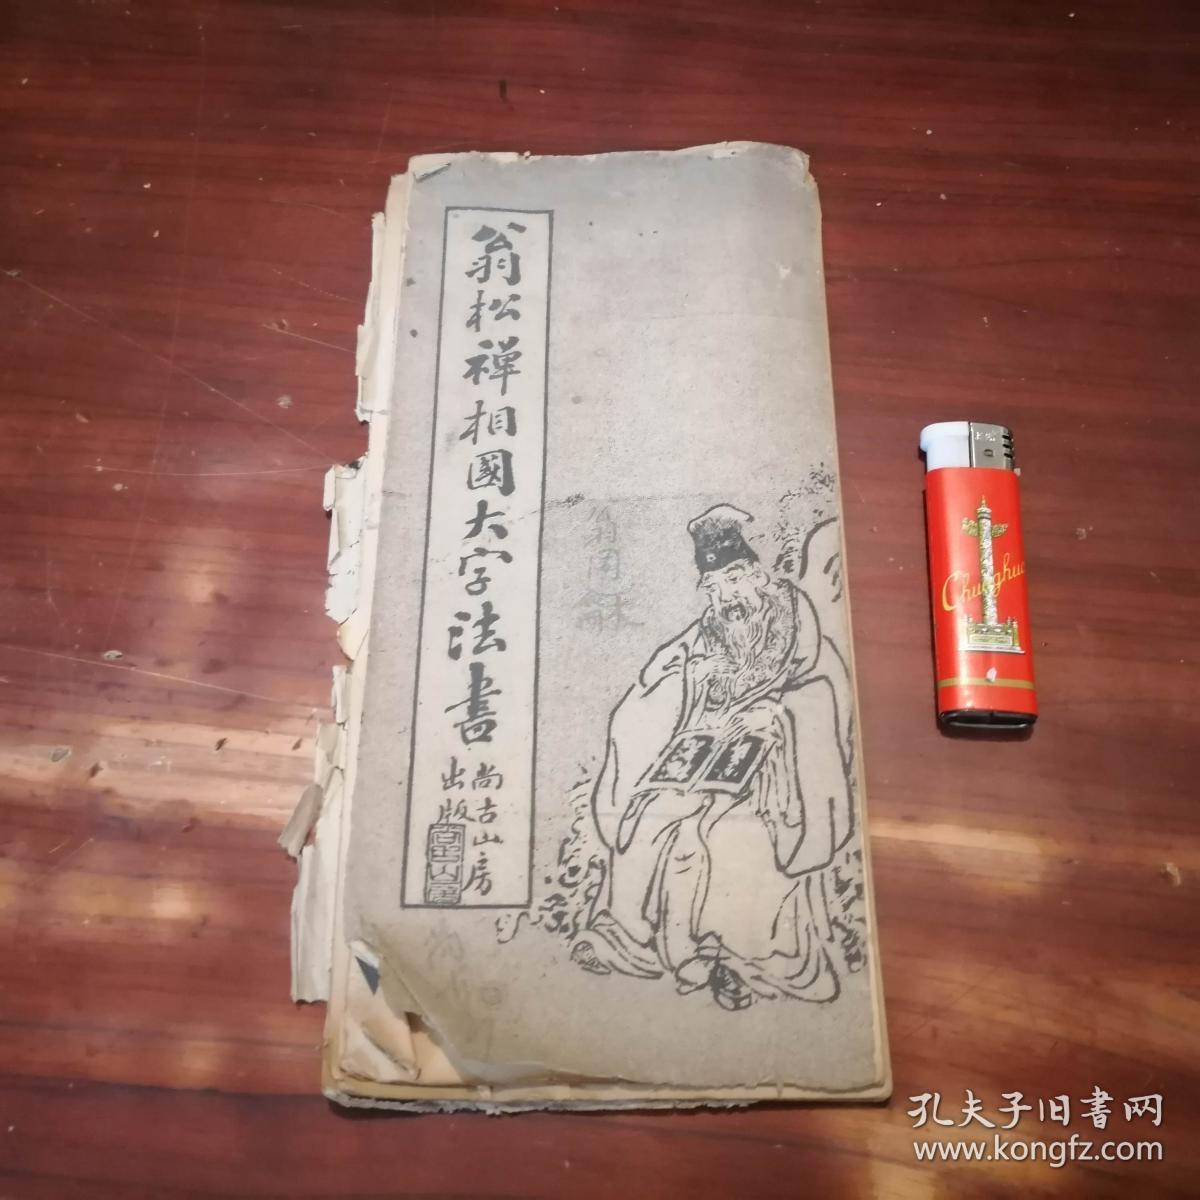 翁松禅相國大字法書
尚古山房
出版
翁同龢
Chunghua
孔夫子旧書网
www.kongfz.com